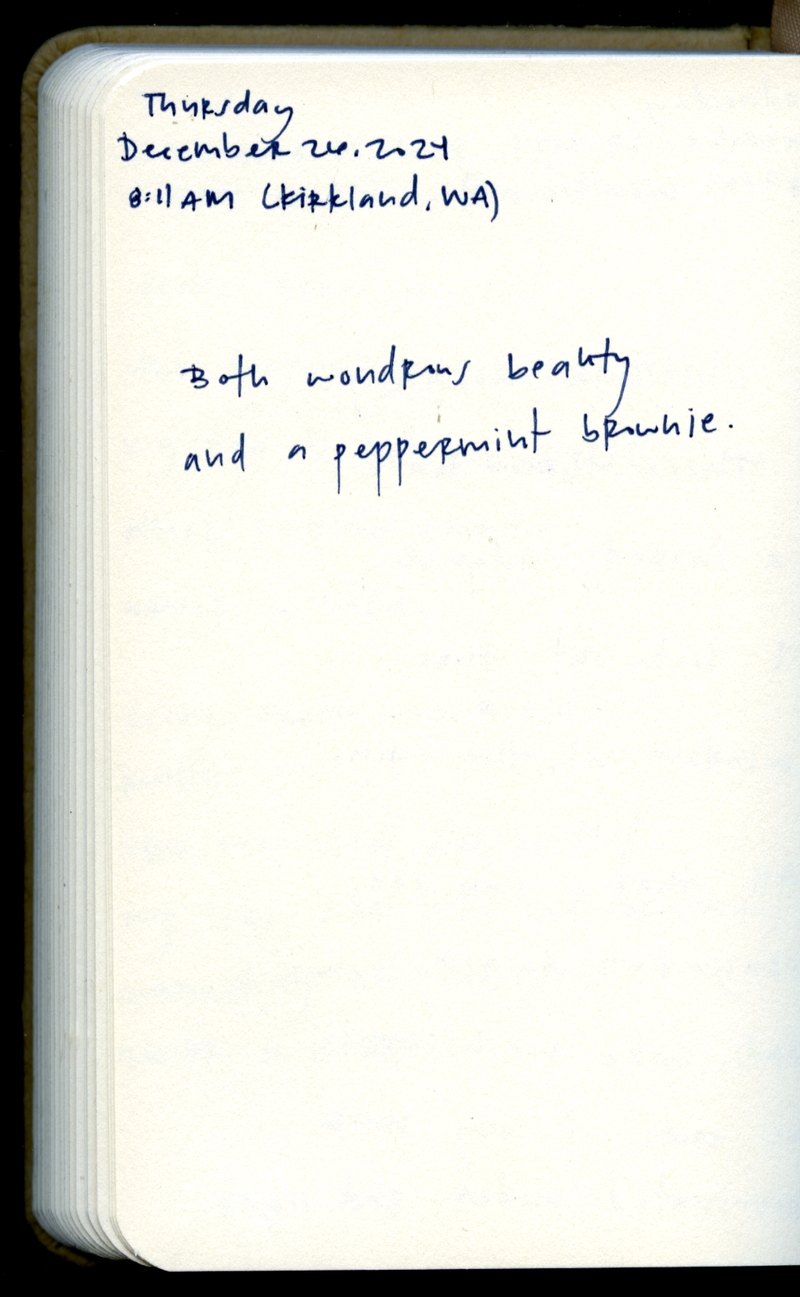 Thursday
December 26, 2024
8:11 AM (Kirkland, WA)
Both wondrous beauty
and a peppermint brownie.